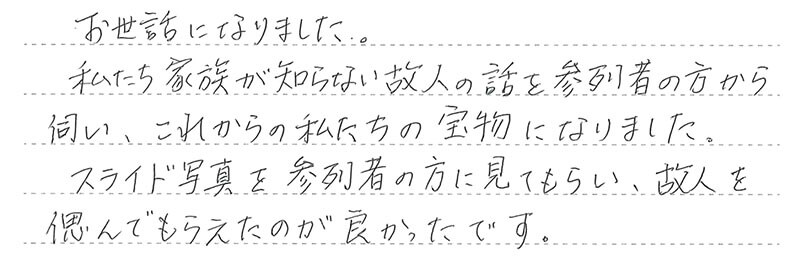 お世話になりました。
私たち家族が知らない故人の話を参列者の方から
伺い、これからの私たちの宝物になりました。
スライド写真を参列者の方に見てもらい、故人を
偲んでもらえたのが良かったです。